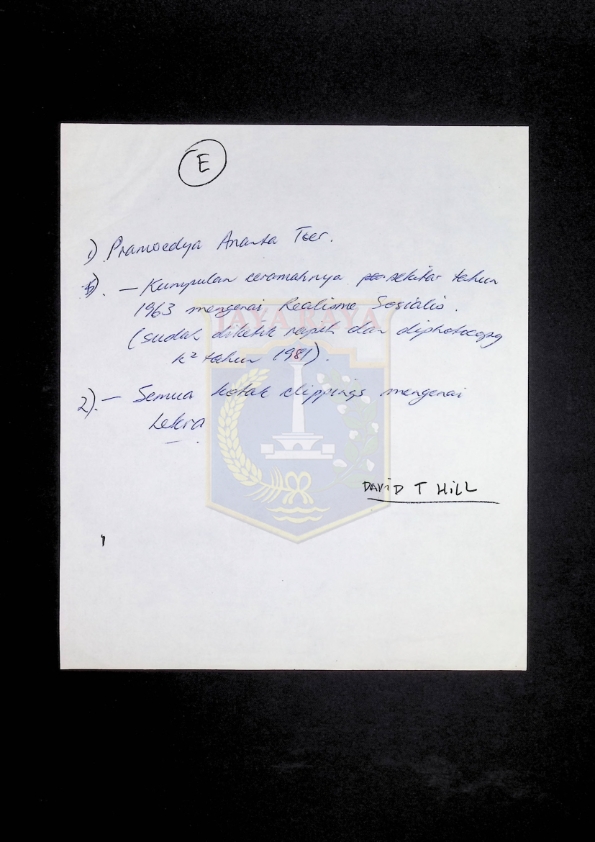 E
1) Pramoedya Ananta Toer.
– Kumpulan ceramahnya sekitar tahun
1963 mengenai Realisme Sosialis.
(sudah diketik rapih dan diphotocopy
k² tahun 1981).
2) – Semua kotak clippings mengenai
Lekra
DAVID T HILL
JAYA RAYA